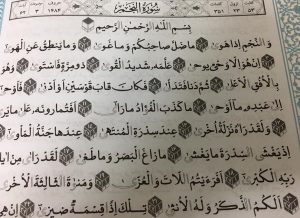 سورة النجم
بِسْمِ اللَّهِ الرَّحْمَٰنِ الرَّحِيمِ
وَالنَّجْمِ إِذَا هَوَىٰ مَا ضَلَّ صَاحِبُكُمْ وَمَا غَوَىٰ وَمَا يَنطِقُ عَنِ الْهَوَىٰ
إِنْ هُوَ إِلَّا وَحْيٌ يُوحَىٰ عَلَّمَهُ شَدِيدُ الْقُوَىٰ ذُو مِرَّةٍ فَاسْتَوَىٰ وَهُوَ
بِالْأُفُقِ الْأَعْلَىٰ ثُمَّ دَنَا فَتَدَلَّىٰ فَكَانَ قَابَ قَوْسَيْنِ أَوْ أَدْنَىٰ
إِلَىٰ عَبْدِهِ مَا أَوْحَىٰ مَا كَذَبَ الْفُؤَادُ مَا رَأَىٰ أَفَتُمَارُونَهُ عَلَىٰ مَا يَرَىٰ
وَلَقَدْ رَآهُ نَزْلَةً أُخْرَىٰ عِندَ سِدْرَةِ الْمُنتَهَىٰ عِندَهَا جَنَّةُ الْمَأْوَىٰ
إِذْ يَغْشَى السِّدْرَةَ مَا يَغْشَىٰ مَا زَاغَ الْبَصَرُ وَمَا طَغَىٰ لَقَدْ رَأَىٰ مِنْ
رَبِّهِ الْكُبْرَىٰ أَفَرَأَيْتُمُ اللَّاتَ وَالْعُزَّىٰ وَمَنَاةَ الثَّالِثَةَ الْأُخْرَىٰ
أَلَكُمُ الذَّكَرُ وَلَهُ الْأُنثَىٰ تِلْكَ إِذًا قِسْمَةٌ ضِيزَىٰ إِنْ هِيَ